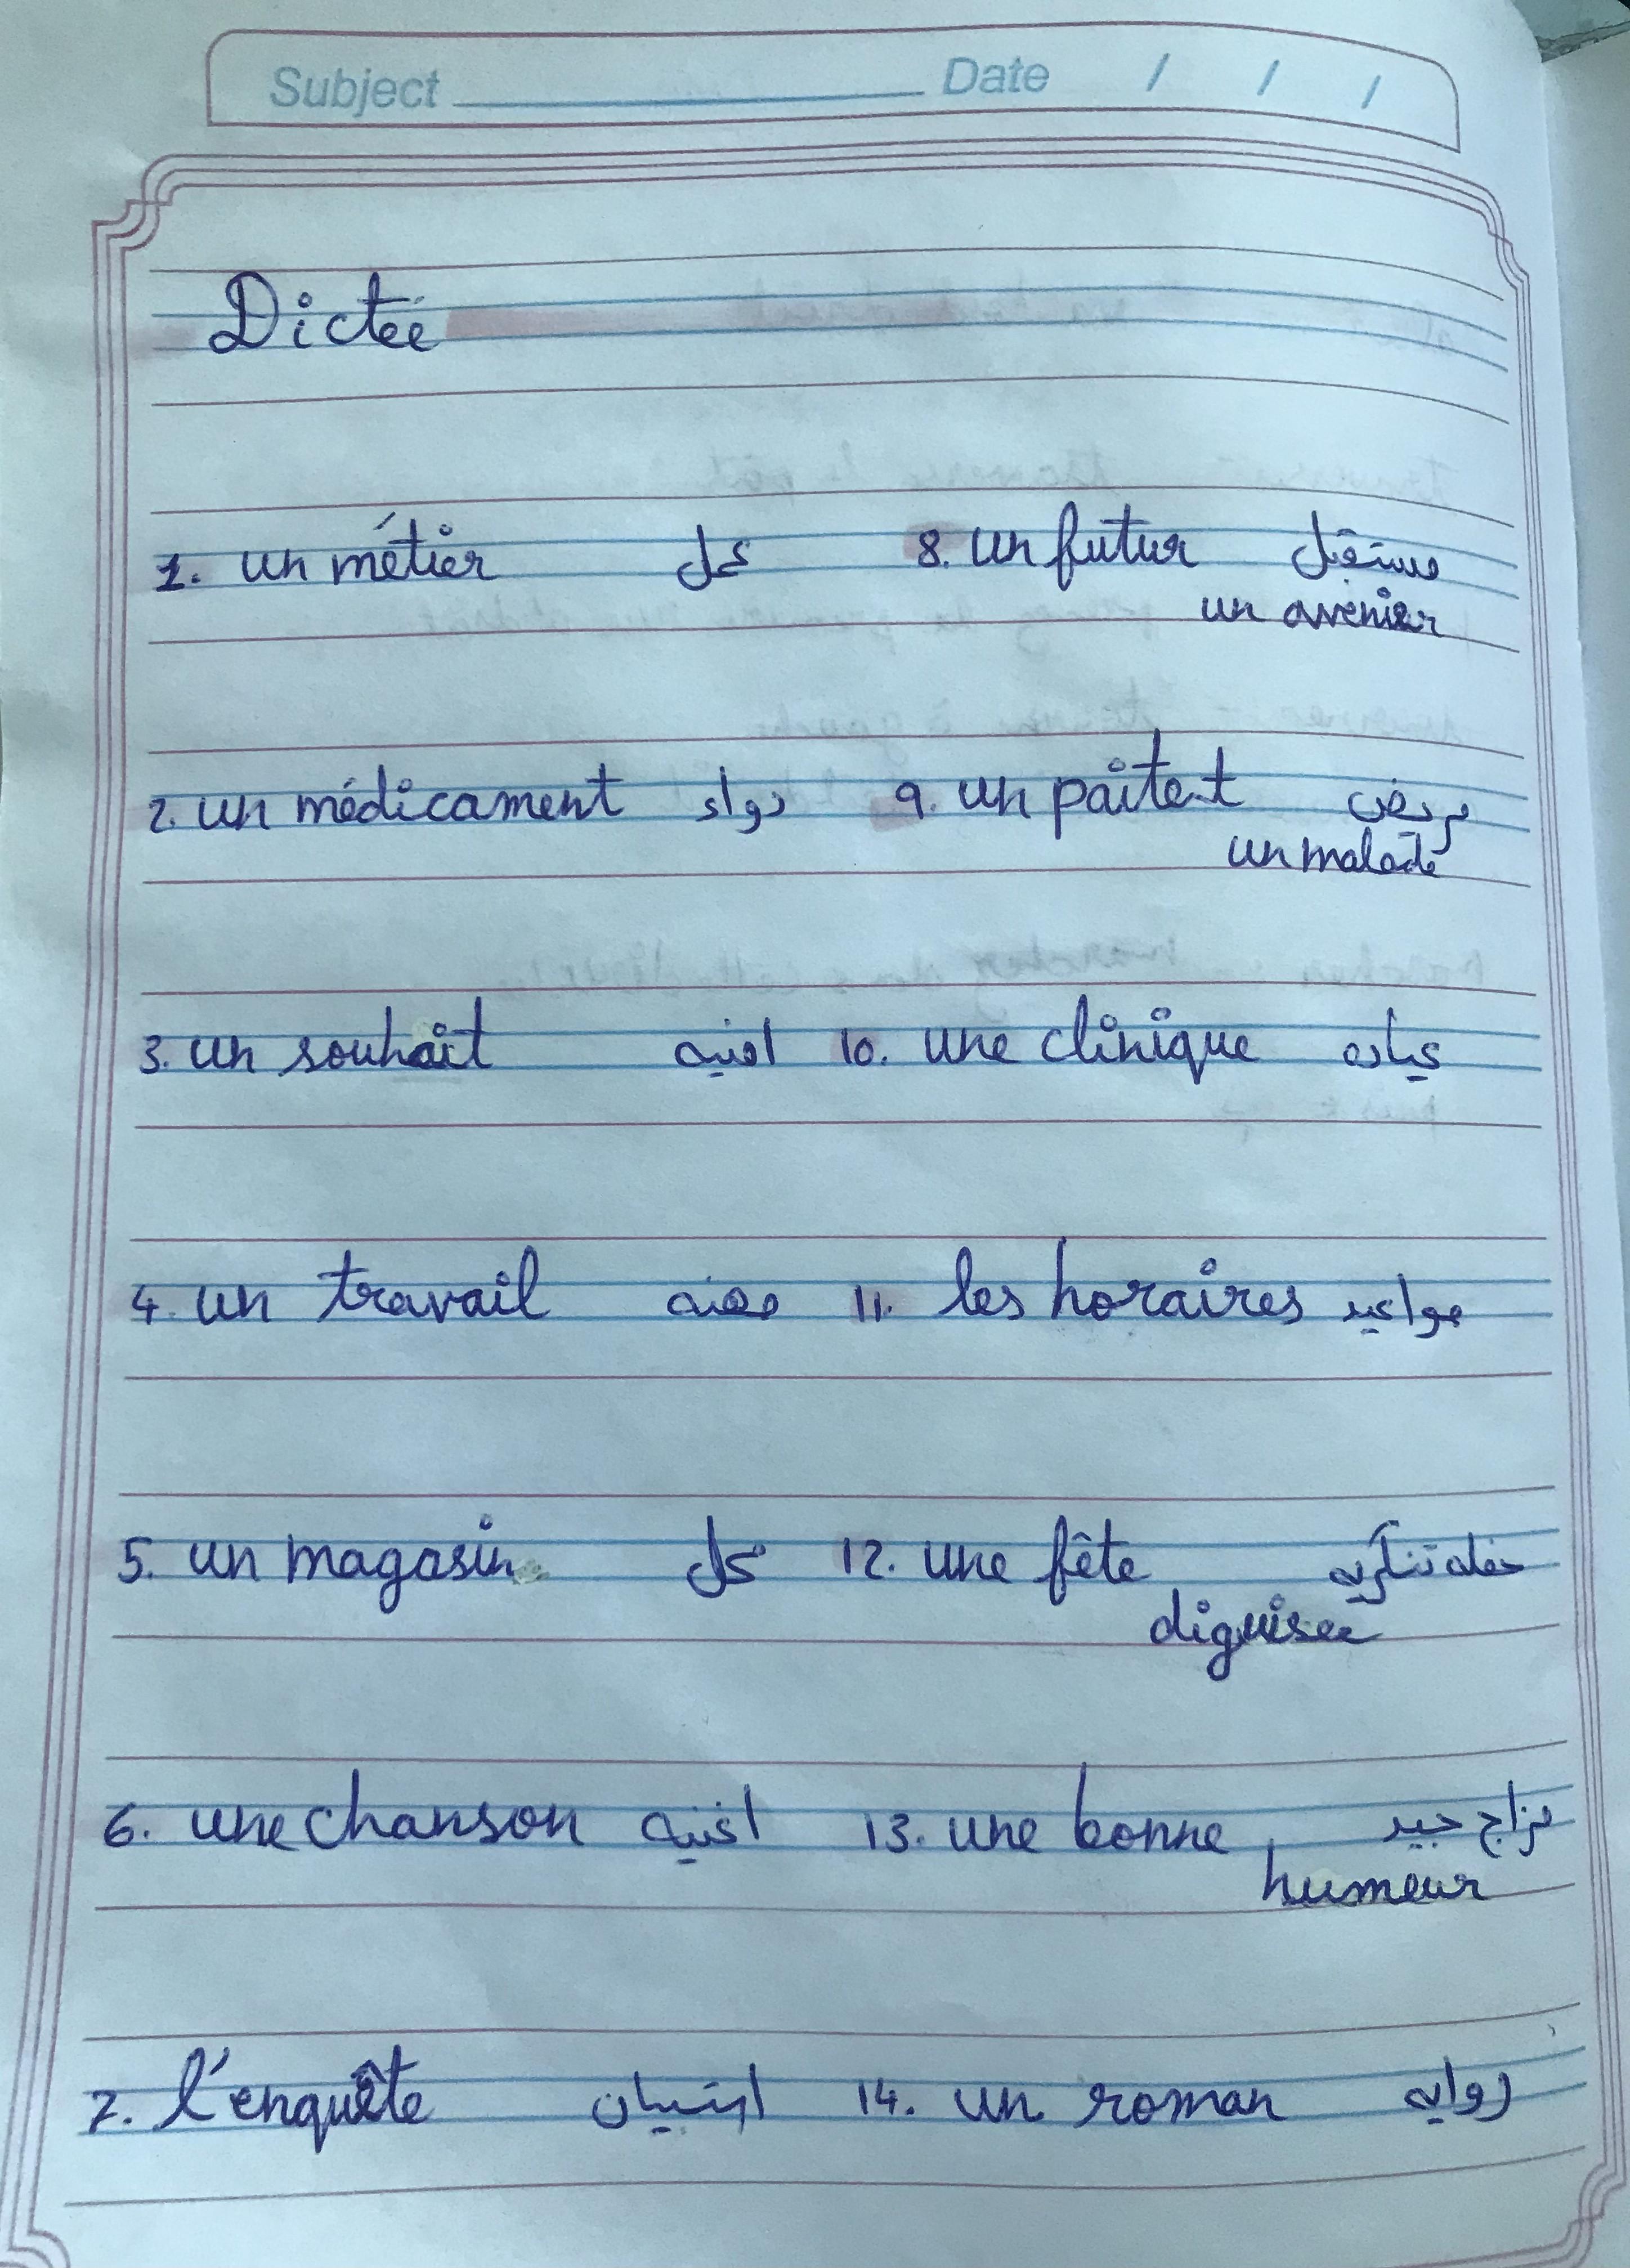 Subject Date / / /
Dictée
1. un métier عمل 8. un futur مستقبل
un avenir
2. un médicament دواء 9. un paitent مريض
un malade
3. un souhait امنيه 10. une clinique عياده
4. un travail مهنه 11. les horaires مواعيد
5. un magasin محل 12. une fête حفله تنكريه
diguisee
6. une chanson اغنيه 13. une bonne مزاج جيد
humeur
7. l'enquête استبيان 14. un roman روايه